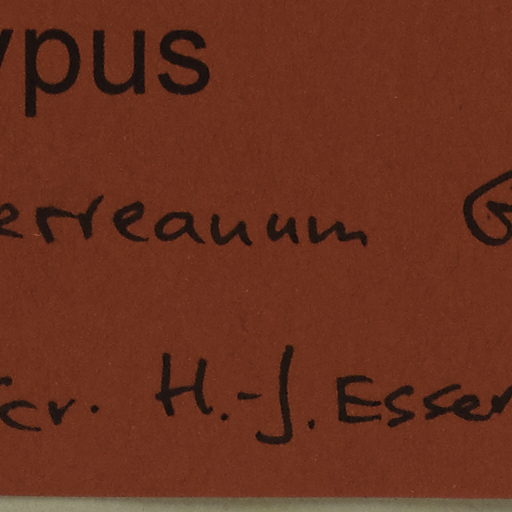 ypus
erreanum G
scr. H.-J. Esser